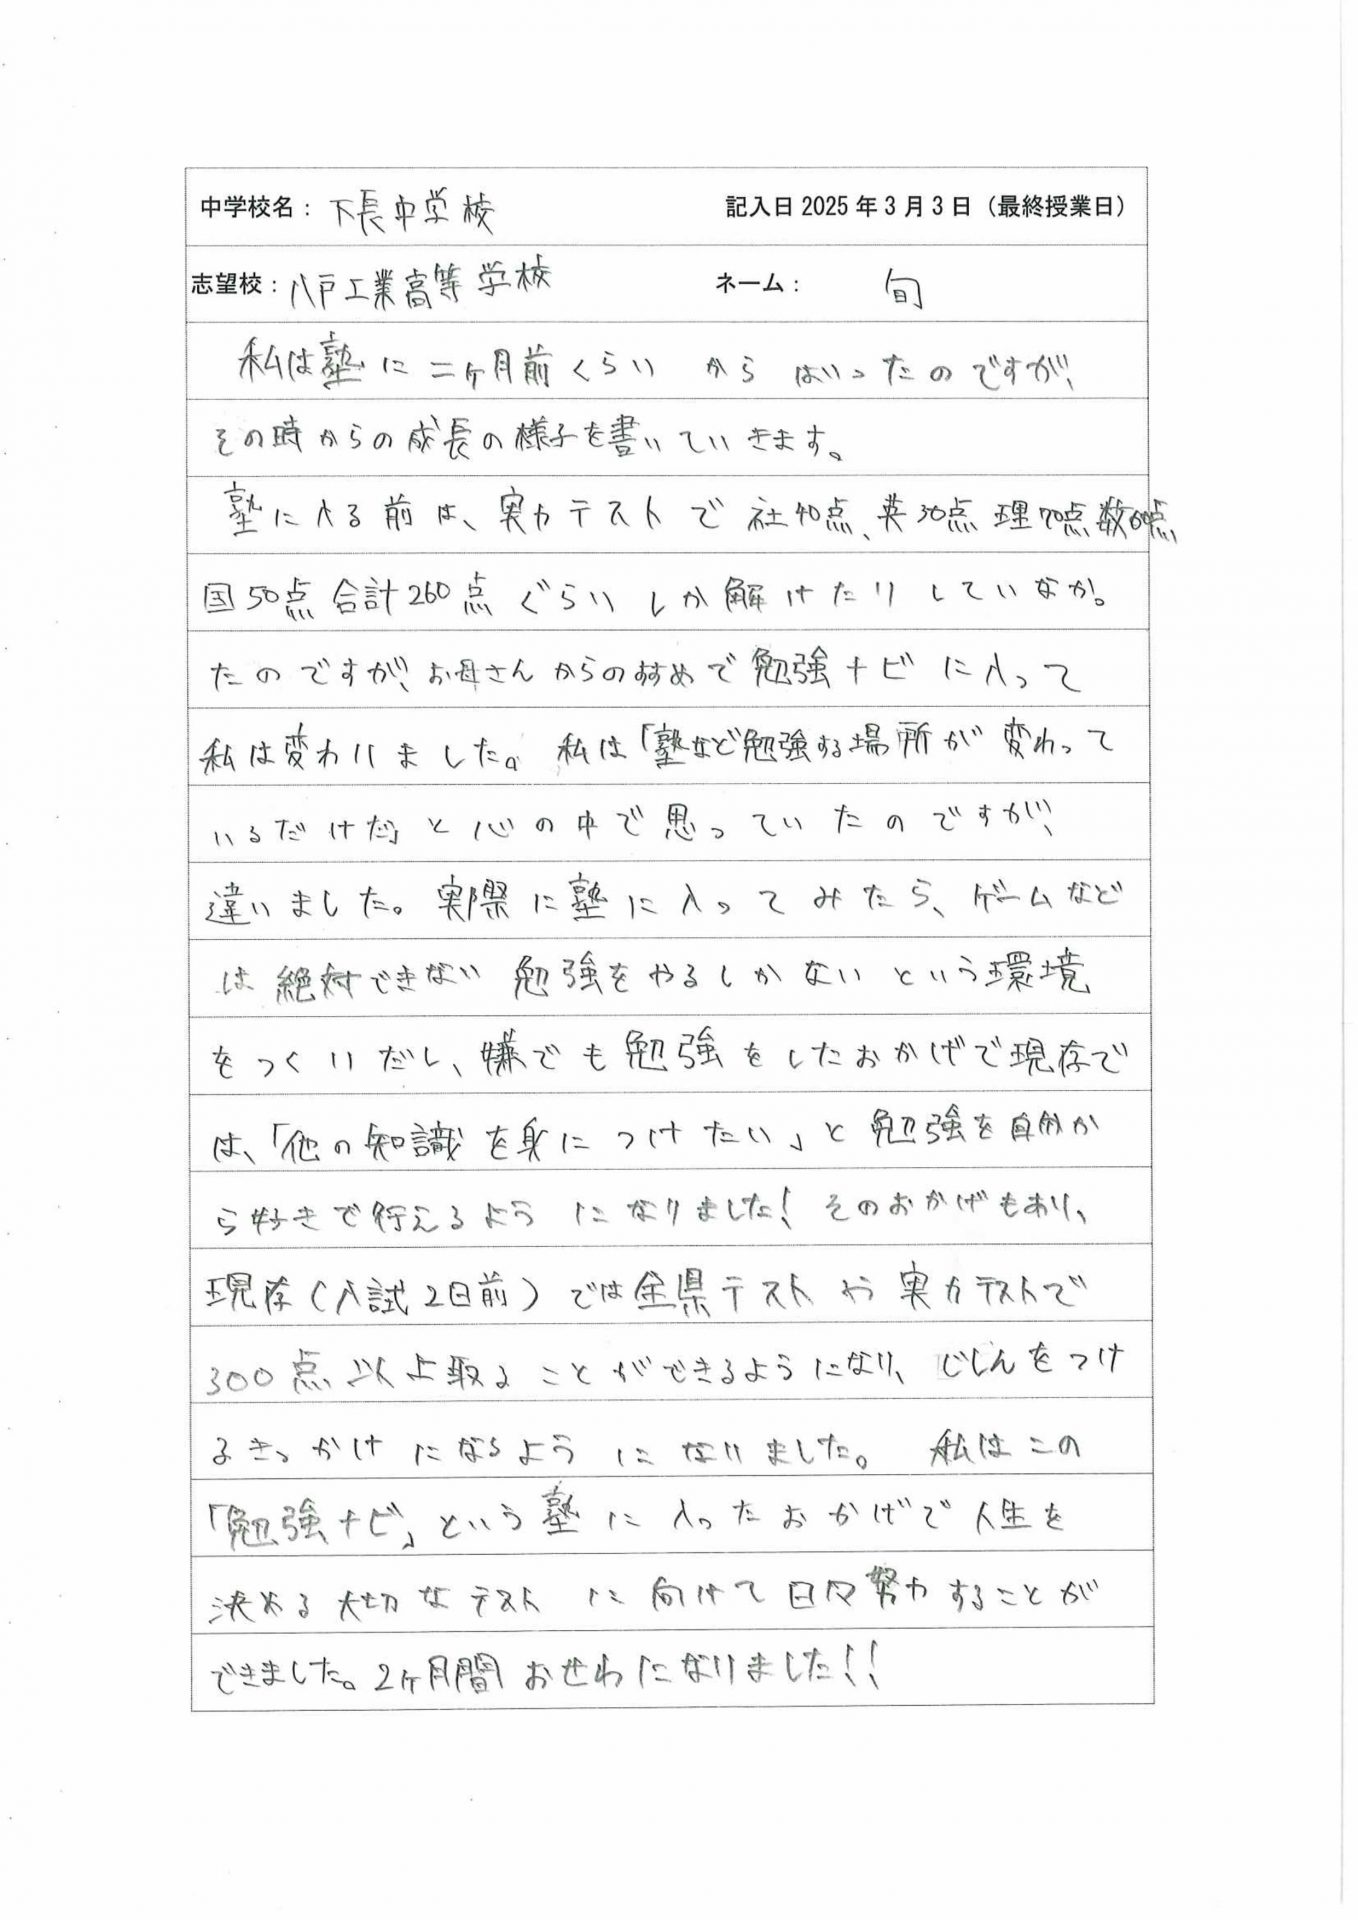 中学校名：下長中学校 記入日2025年3月3日（最終授業日）
志望校：八戸工業高等学校 ネーム：旬
私は塾に二ヶ月前くらいからはいったのですが、
その時からの成長の様子を書いていきます。
塾に入る前は、実力テストで社40点、英30点理70点数60点
国50点合計260点ぐらいしか解けたりしていなか。
たのですが、お母さんからのすすめで勉強ナビに入って
私は変わりました。私は「塾など勉強する場所が変わって
いるだけだ」と心の中で思っていたのですが、
違いました。実際に塾に入ってみたら、ゲームなど
は絶対できない勉強をやるしかないという環境
をつくりだし、嫌でも勉強をしたおかげで現存で
は、「他の知識を身につけたい」と勉強を自分か
ら好きで行えるようになりました！そのおかげもあり、
現存（入試2日前）では全県テストや実力テストで
300点以上取ることができるようになり、じしんをつけ
るきっかけになるようになりました。私はこの
「勉強ナビ」という塾に入ったおかげで人生を
決める大切なテストに向けて日々努力することが
できました。2ヶ月間おせわになりました！！